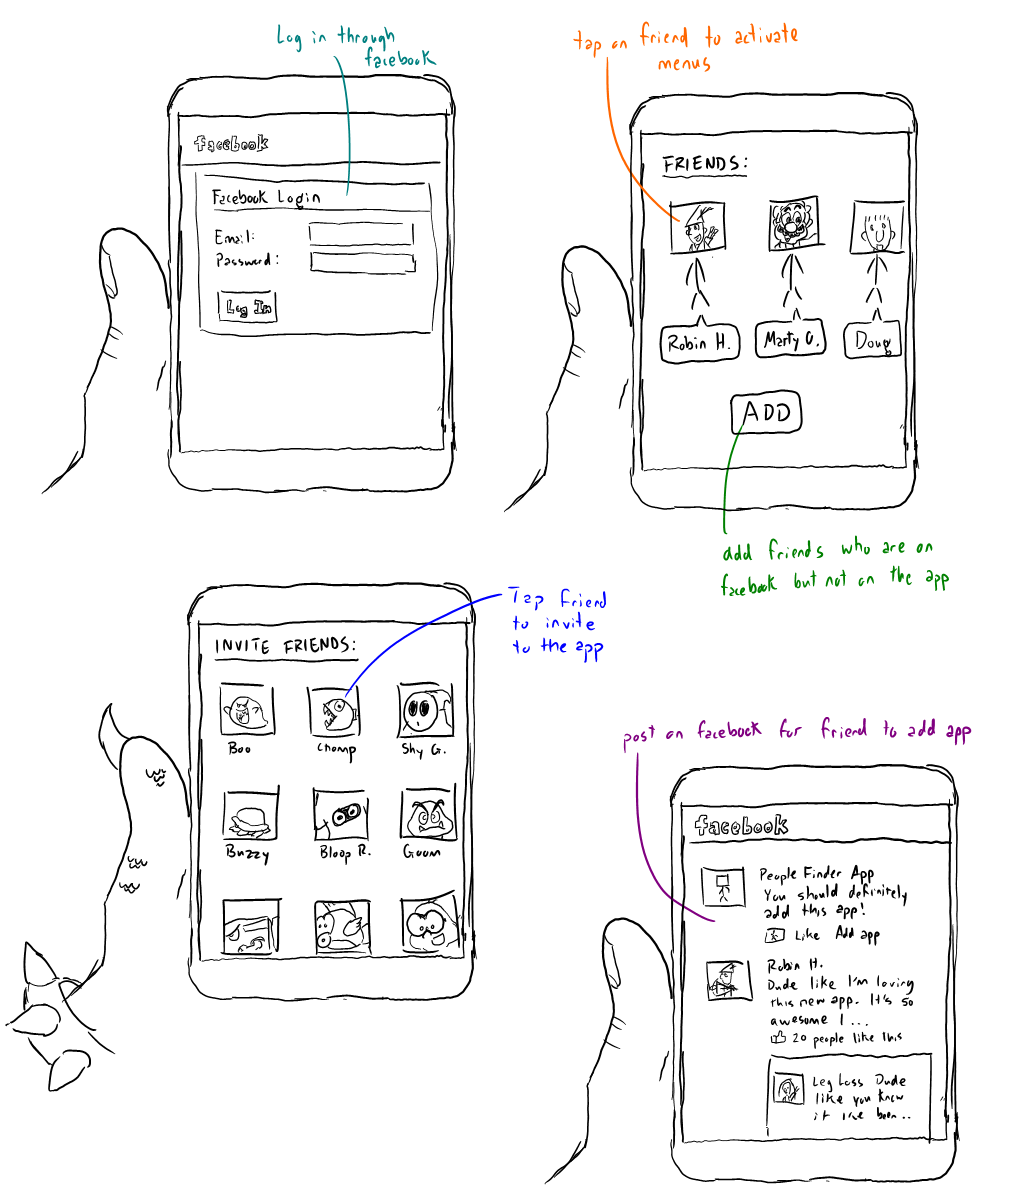 Log in through
facebook
facebook
Facebook Login
Email:
Password:
Log In
tap on friend to activate
menus
FRIENDS:
Robin H.
Marty O.
Doug
ADD
add friends who are on
facebook but not on the app
INVITE FRIENDS:
Boo
Chomp
Shy G.
Buzzy
Bloop R.
Goom
Tap friend
to invite
to the app
post on facebook for friend to add app
facebook
People Finder App
You should definitely
add this app!
Like Add app
Robin H.
Dude like I'm loving
this new app. It's so
awesome I...
20 people like this
Leg Loss Dude
like you know
it like been..